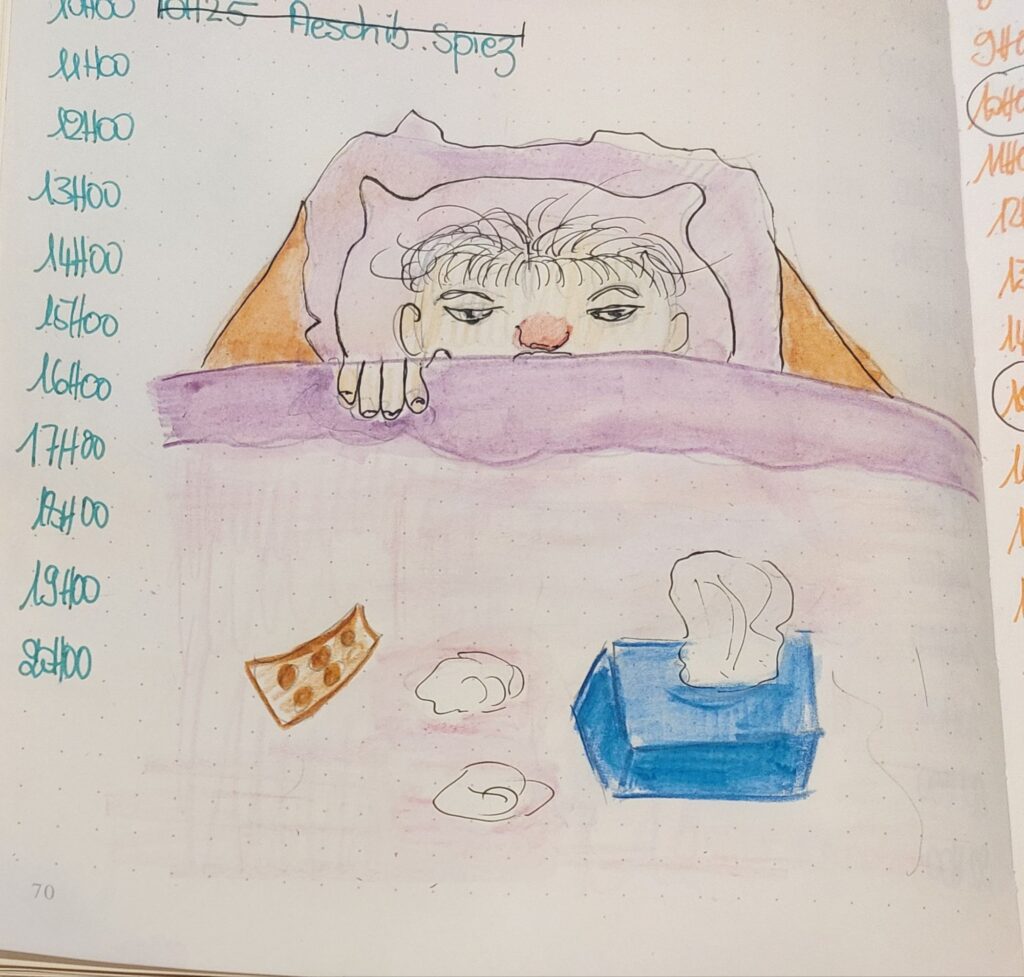 10H00 10H25 Aeschib. Spiez
11H00
12H00
13H00
14H00
15H00
16H00
17H00
18H00
19H00
20H00
70
9H0
10H0
11H0
12
13
14